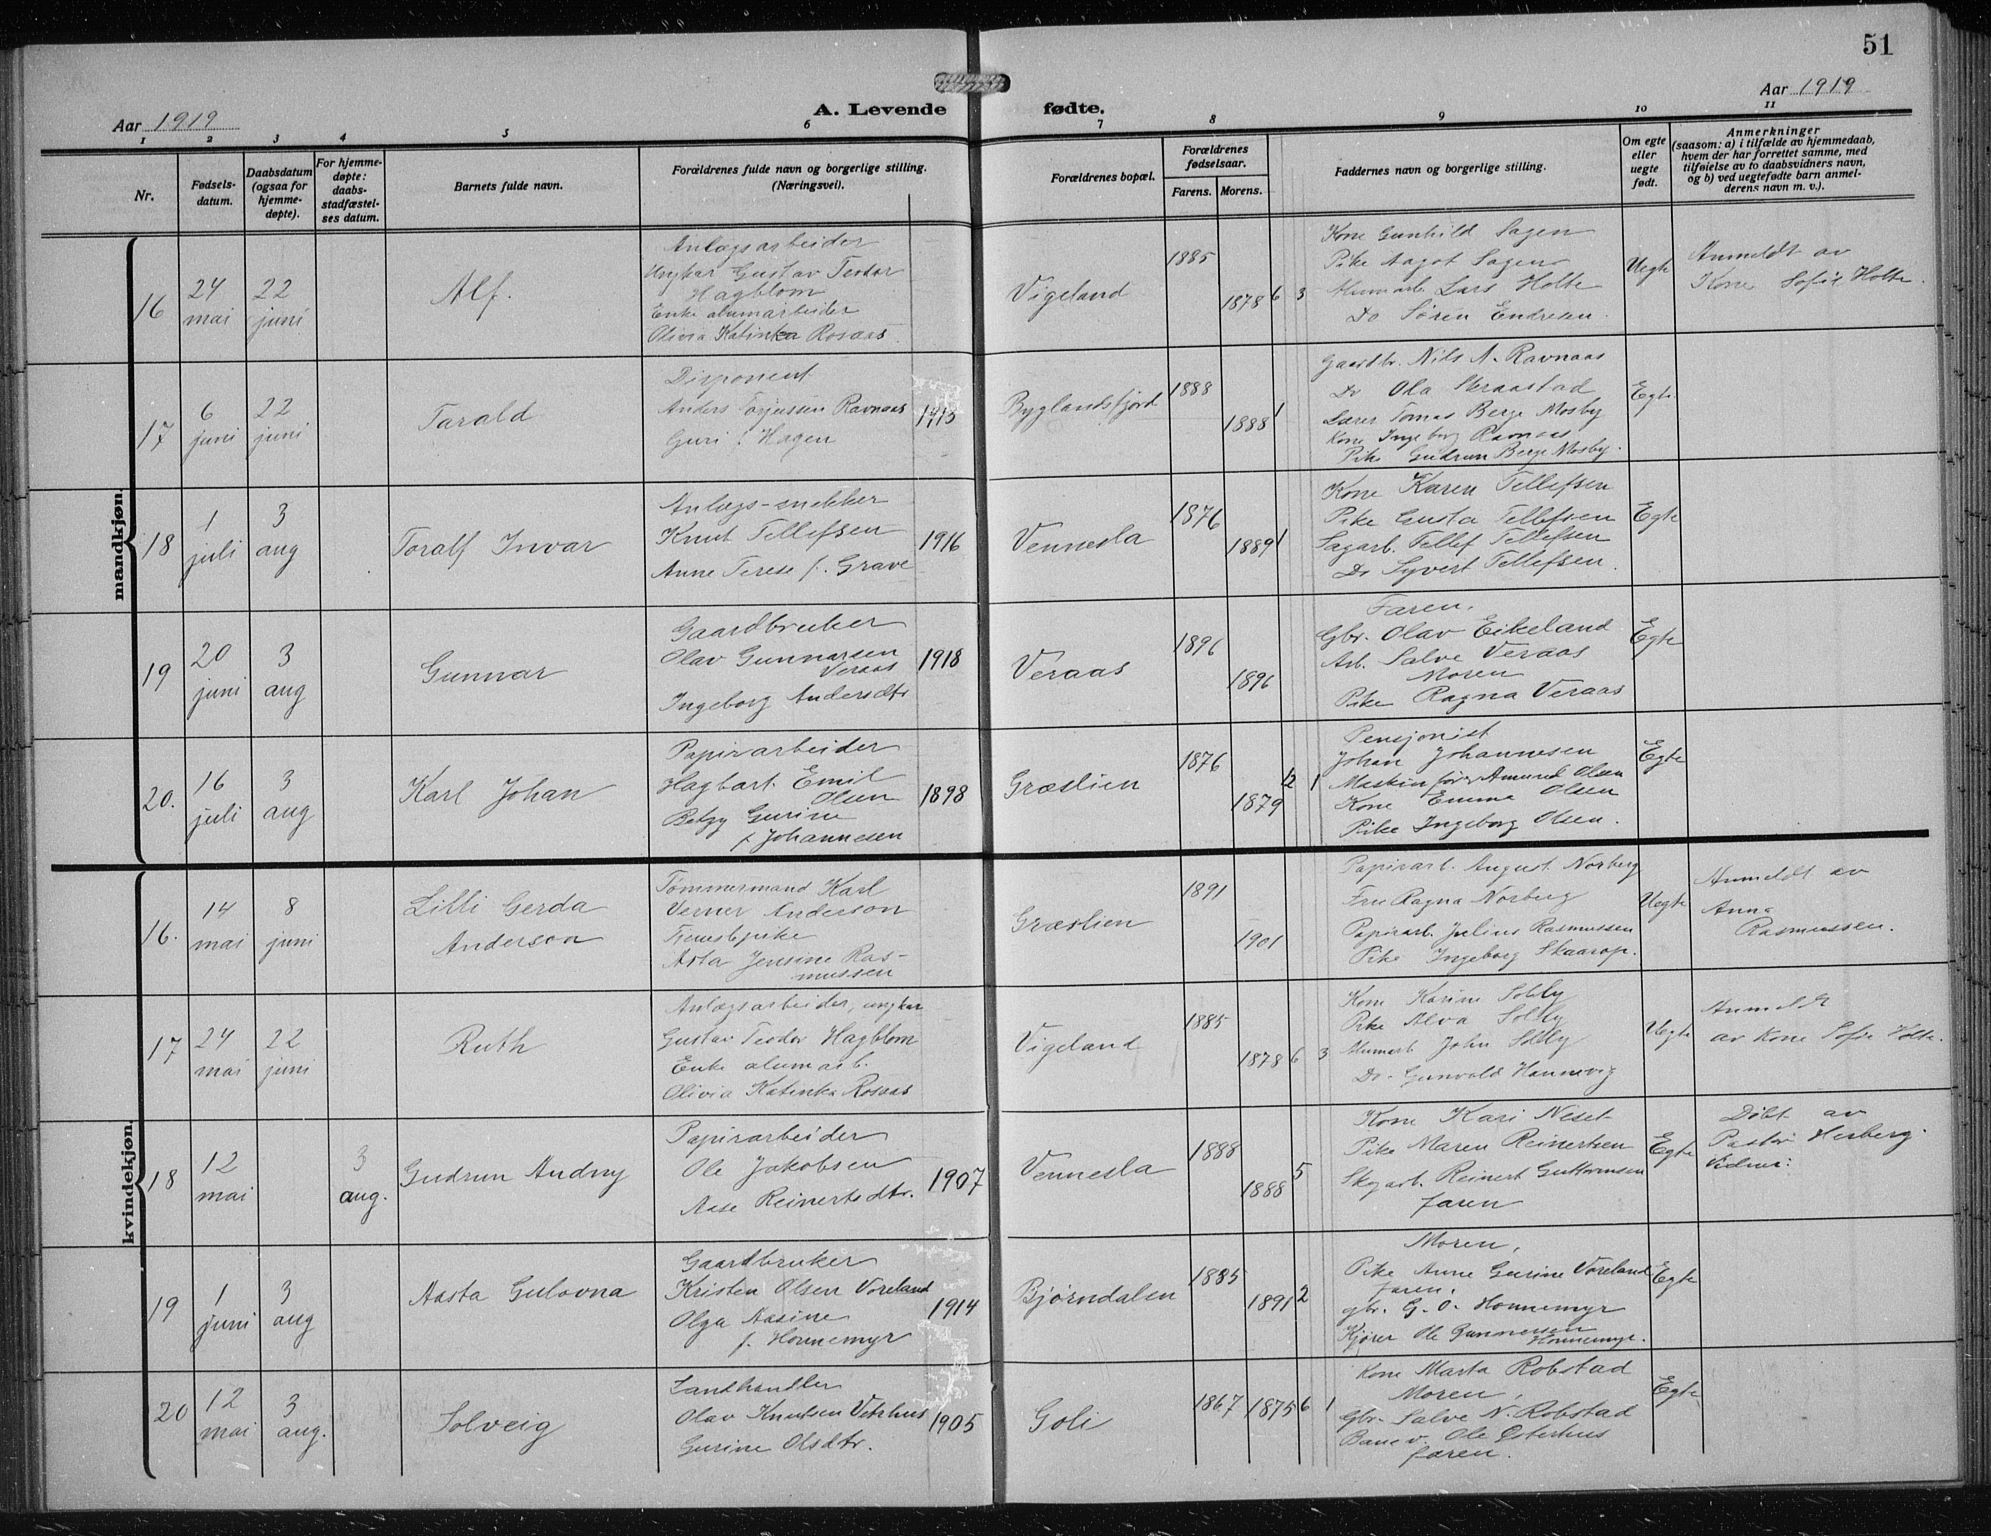 51
Aar 1919
A. Levende fødte.
Aar 1919
1 2 3 4 5 6 7 8 9 10 11
Nr.
Fødsels-
datum.
Daabsdatum
(ogsaa for
hjemme-
døpte).
For hjemme-
døpte:
daabs-
stadfæstel-
ses datum.
Barnets fulde navn.
Forældrenes fulde navn og borgerlige stilling.
(Næringsvei).
Forældrenes bopæl.
Forældrenes
fødselsaar.
Farens. Morens.
Faddernes navn og borgerlige stilling.
Om egte
eller
uegte
født.
Anmerkninger
(saasom: a) i tilfælde av hjemmedaab,
hvem der har forrettet samme, med
tilføielse av to daabsvidners navn,
og b) ved uegtefødte barn anmel-
derens navn m. v.).
mandkjøn.
16
24
mai
22
juni
Alf.
Anlægsarbeider
Ungkar Gustav Teodor
Hagblom
Enke alumarbeider
Olivia Katinka Rosaas
Vigeland
1885
1878
6 3
Kone Gunhild Sagen
Pike Aagot Sagen
Alumarb. Lars Holte
Do Søren Endresen.
Uegte
Anmeldt av
Kone Sofie Holte.
17
6
juni
22
juni
Tarald
Disponent
Anders Torjussen Ravnaas
Guri f. Hagen
1913
Byglandsfjord
1888
1888
1
Gaardbr. Nils A. Ravnaas
Do Ola Skraastad
Lærer Tomas Berge Mosby
Kone Ingeborg Ravnaas
Pike Gudrun Berge Mosby.
Egte
18
1
juli
3
aug
Toralf Invar
Anlægs-snekker
Knut Tellefsen
Anne Terese f. Grave
1916
Vennesla
1876
1889
1
Kone Karen Tellefsen
Pike Gusta Tellefsen
Sagarb. Tellef Tellefsen
Do Syvert Tellefsen.
Egte
19
20
juni
3
aug
Gunnar
Gaardbruker
Olav Gunnarsen
Veraas
Ingeborg Andersdtr
1918
Veraas
1896
1896
Faren.
Gbr. Olav Eikeland
Arb. Salve Veraas
Moren
Pike Ragna Veraas
Egte
20.
16
juli
3
aug
Karl Johan
Papirarbeider
Hagbart Emil
Olsen
Betzy Gurine
f. Johannesen
1898
Græslien
1876
1879
12 1
Pensjonist
Johan Johannesen
Maskinfører Amund Olsen
Kone Emma Olsen
Pike Ingeborg Olsen.
Egte
kvindekjøn.
16.
14
mai
8
juni
Lilli Gerda
Anderson
Tømmermand Karl
Verner Anderson
Tjenestepike
Asta Jensine Ras-
mussen
Græslien
1891
1901
Papirarb. August Norberg
Fru Ragna Norberg
Papirarb. Julius Rasmussen
Pike Ingeborg Skaarap.
Uegte
Anmeldt av
Anna
Rasmussen.
17
24
mai
22
juni
Ruth
Anlægsarbeider, ungkar
Gustav Teodor Hagblom
Enke alumarb.
Olivia Katinka Rosaas
Vigeland
1885
1878
6 3
Kone Karine Solby
Pike Alva Solby
Alumarb John Solby
Do Gunvald Hannevig
Uegte
Anmeldt
av Kone Sofie Holte.
18
12
mai
3
aug.
Gudrun Audny
Papirarbeider
Ole Jakobsen
Aase Reinertsdtr.
1907
Vennesla
1888
1888
5
Kone Kari Neset
Pike Maren Reinertsen
Skogarb. Reinert Guttormsen
faren
Egte
Døbt av
Pastor Hesberg.
19
1
juni
3
aug
Aasta Gulovna
Gaardbruker
Kristen Olsen Voreland
Olga Aasine
f. Honnemyr
1914
Bjørndalen
1885
1891
2
Moren,
Pike Anne Gurine Voreland
faren.
gbr. G. O. Honnemyr
Kjører Ole Gunnarsen
Honnemyr.
Egte
20
12
mai
3
aug.
Solveig
Landhandler
Olav Knutsen Vetrhus
Gurine Olsdtr.
1905
Goli
1867
1875
6 1
Kone Marta Robstad
Moren,
Gbr. Salve N. Robstad
Banev. Ole Osterhus
faren.
Egte